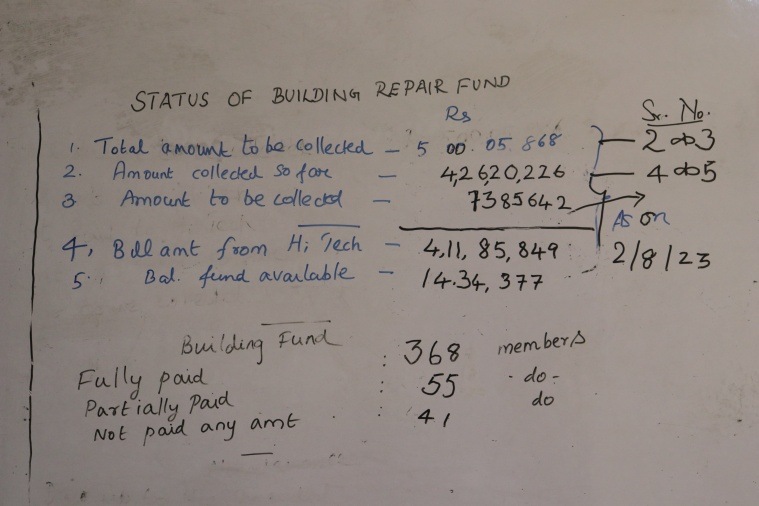 STATUS OF BUILDING REPAIR FUND
Rs
Sr. No.
1. Total amount to be collected - 5 00 05 868 - 2 to 3
2. Amount collected so fare - 4,26,20,226 - 4 to 5
3 Amount to be collected - 7385642
As on
4, Bill amt from Hi Tech - 4,11,85,849 2/8/23
5. Bal. fund available - 14.34,377
Building Fund
Fully paid : 368 members
Partially Paid : 55 -do-
Not paid any amt : 41 do